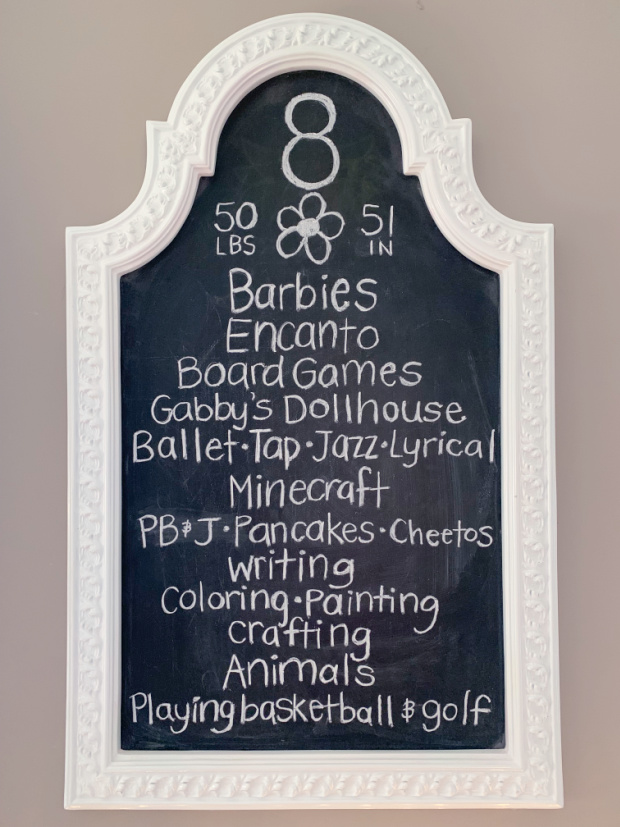 8
50 LBS 51 IN
Barbies
Encanto
Board Games
Gabby's Dollhouse
Ballet·Tap·Jazz·Lyrical
Minecraft
PB&J·Pancakes·Cheetos
writing
Coloring·Painting
crafting
Animals
Playing basketball & golf